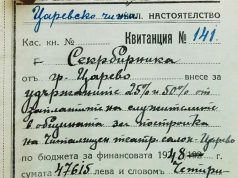 Царевско чит. нал. НАСТОЯТЕЛСТВО
Кас. кн. № Квитанция № 141
Секр. бирника
от гр. Царево внесе за
удържаните 25% и 50% от
заплатите на служителите
в общината за постройка
на читалищен театр. салон. Царево
по бюджета за финансовата 1948
сумата 47615 лева и словом Четири-